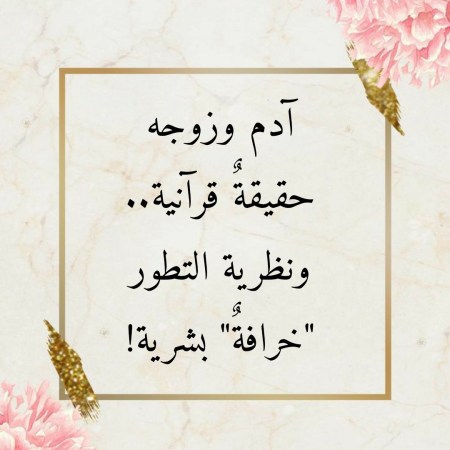 آدم وزوجه
حقيقةٌ قرآنية..
ونظرية التطور
"خرافةٌ" بشرية!